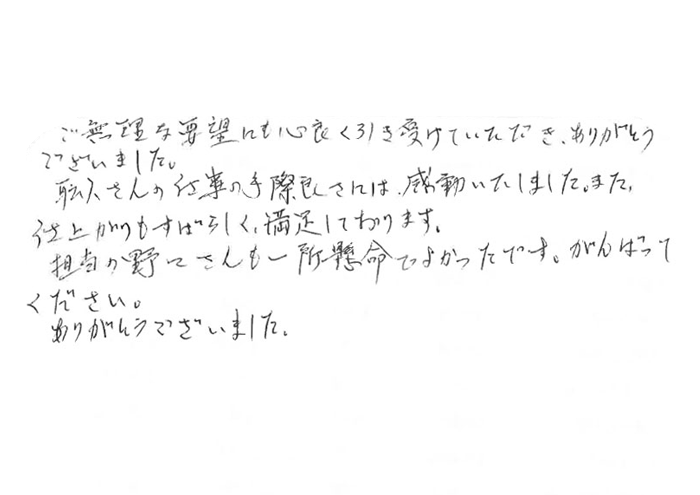 ご無理な要望にも心良く引き受けていただき、ありがとう
ございました。
職人さんの仕事の手際良さには、感動いたしました。また、
仕上がりもすばらしく、満足しております。
担当の野口さんも一所懸命でよかったです。がんばって
ください。
ありがとうございました。